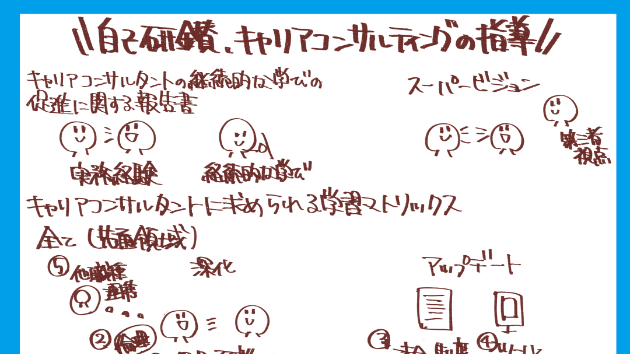 自己研鑽、キャリアコンサルティングの指導
キャリアコンサルタントの継続的な学びの
促進に関する報告書
スーパービジョン
第三者
視点
実務経験
継続的な学び
キャリアコンサルタントに求められる学習マトリックス
全て（共通領域）
⑤他職種
連携
深化
アップデート
②倫理
③
④